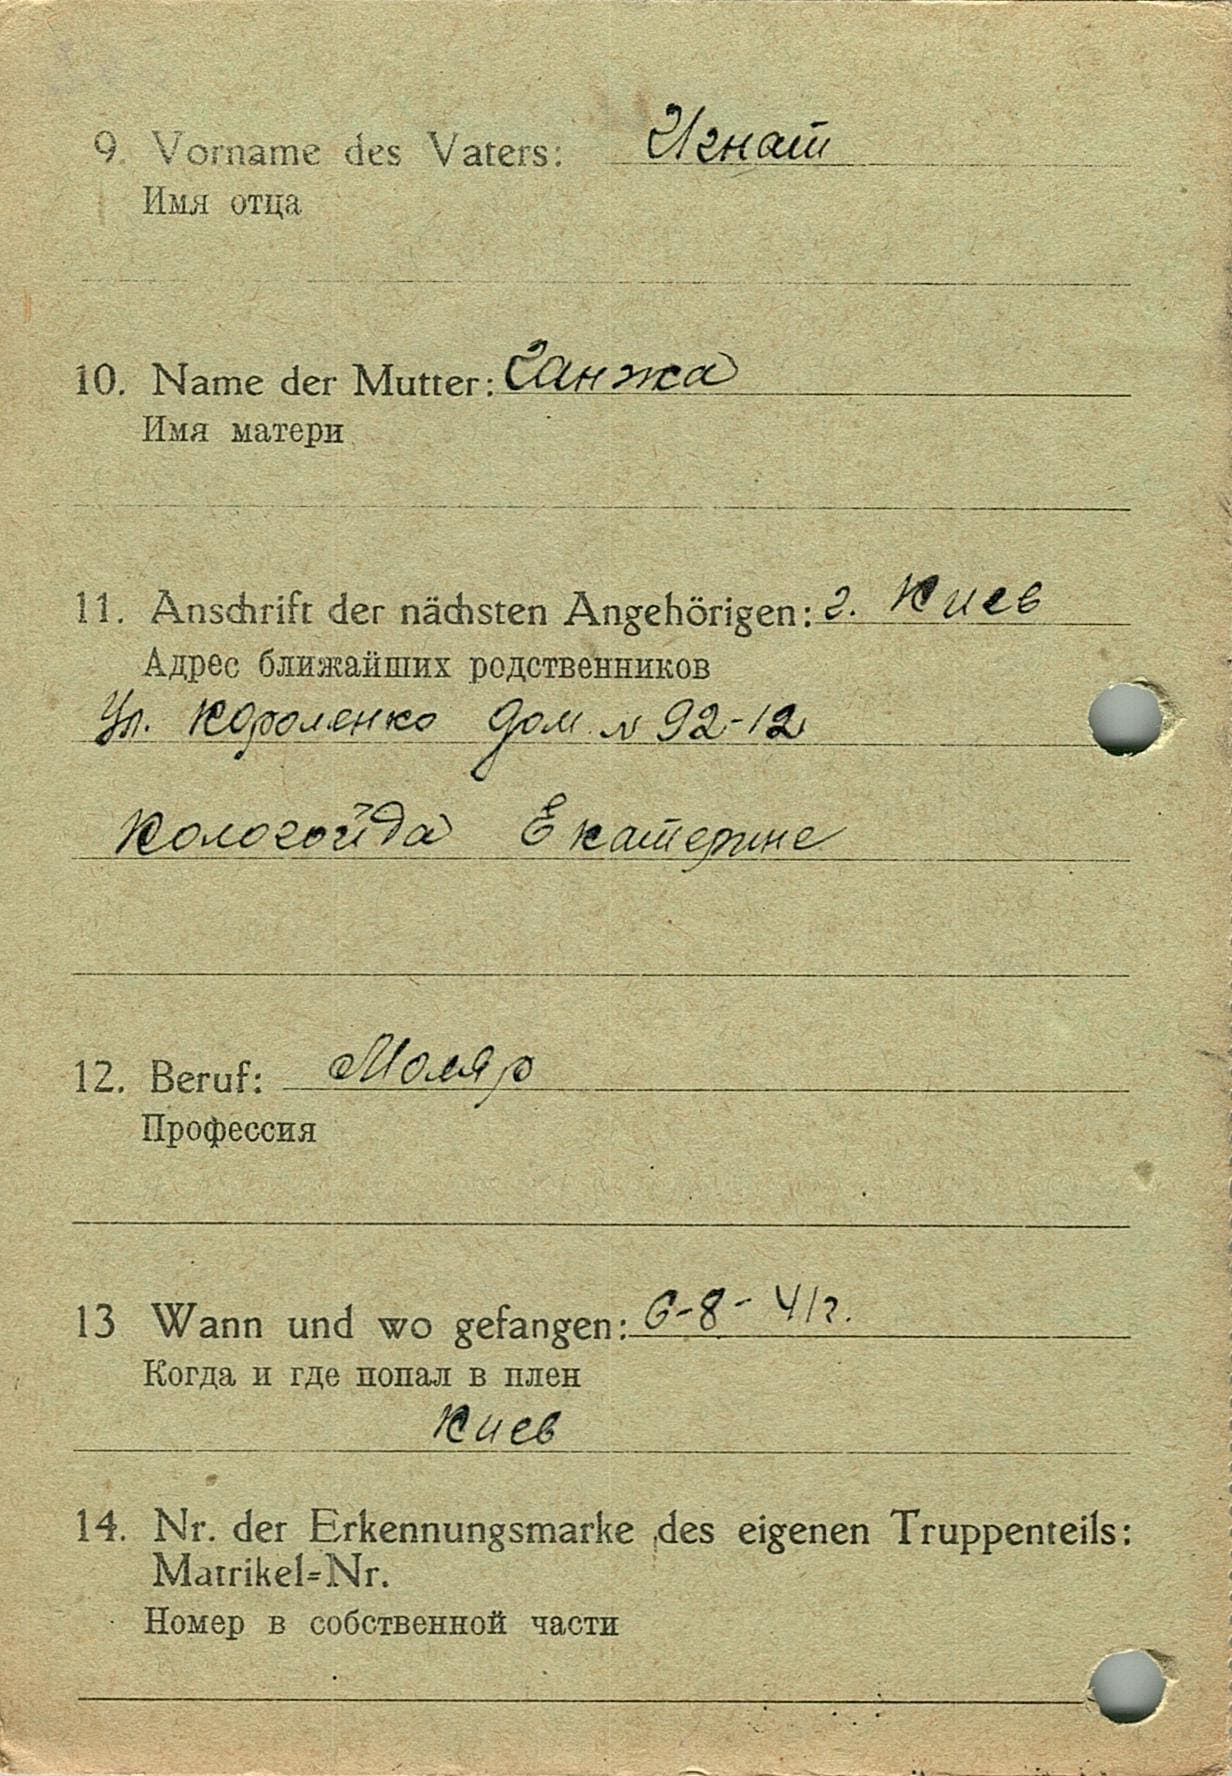 9. Vorname des Vaters: Игнат
Имя отца
10. Name der Mutter: Ганжа
Имя матери
11. Anschrift der nächsten Angehörigen: г. Киев
Адрес ближайших родственников
Ул. Короленко дом N 92-12
Кологойда Екатерине
12. Beruf: Моляр
Профессия
13 Wann und wo gefangen: 6-8-41г.
Когда и где попал в плен
Киев
14. Nr. der Erkennungsmarke des eigenen Truppenteils:
Matrikel=Nr.
Номер в собственной части